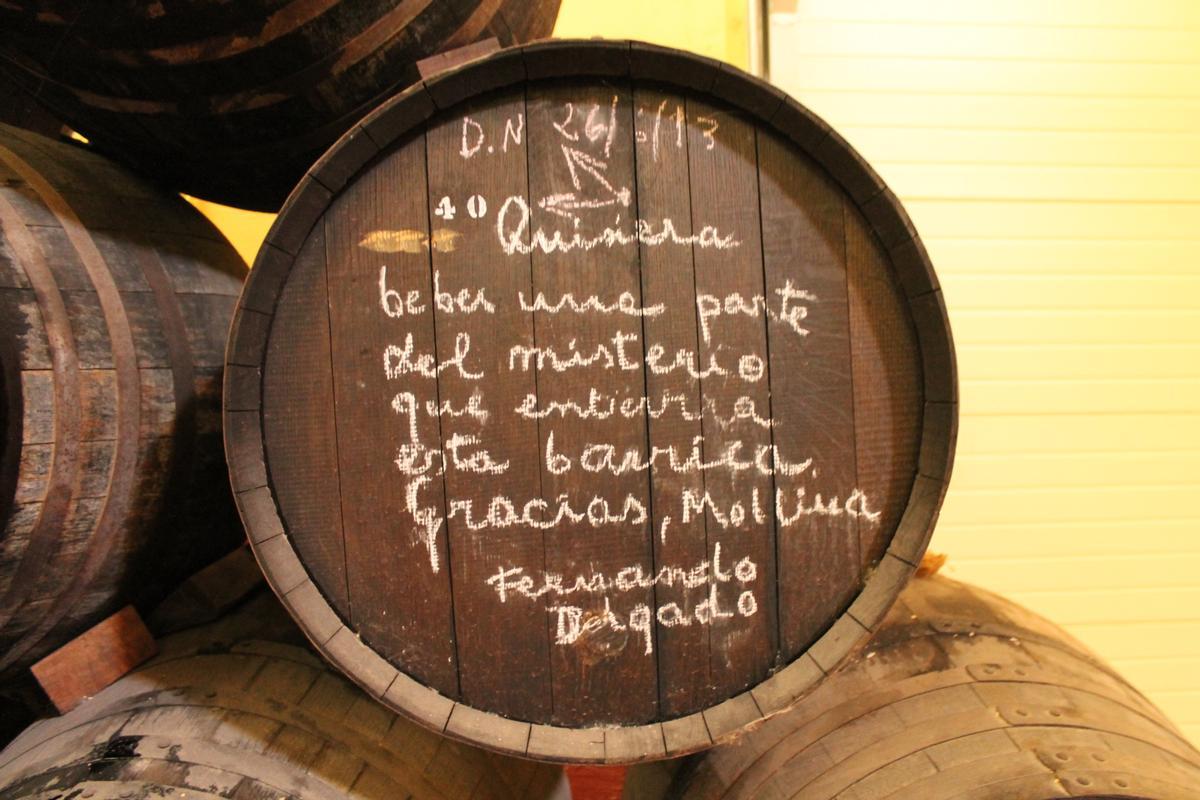 D.N 26/6/13
40
Quisiera
beber una parte
del misterio
que entierra
esta barrica.
Gracias, Mollina
Fernando
Delgado